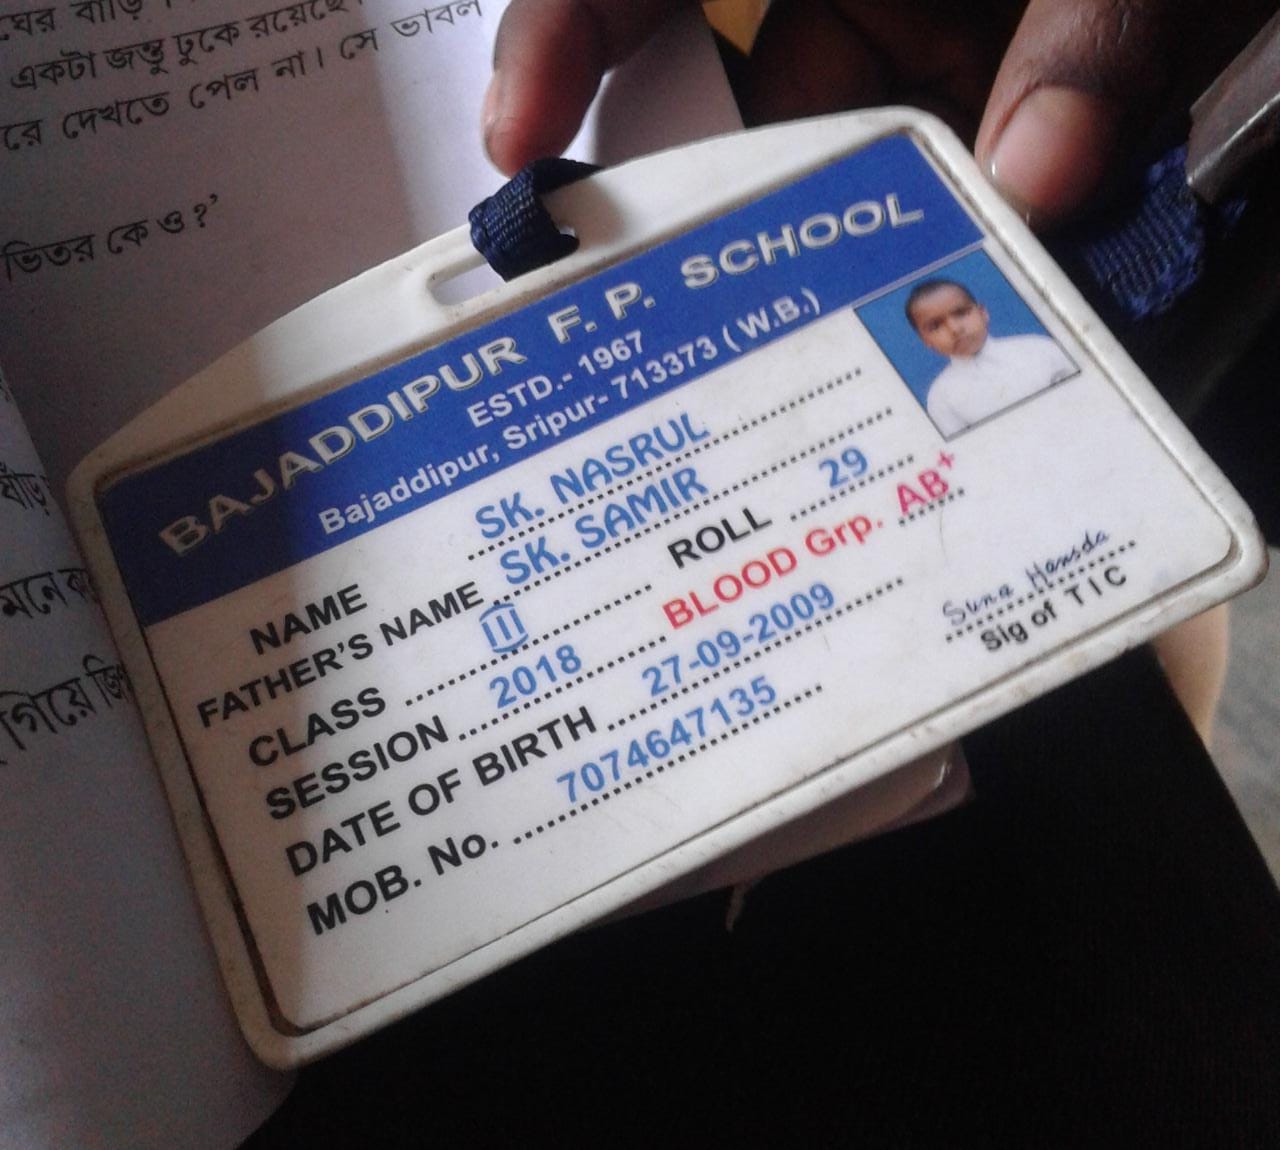 ঘের বাড়ি
একটা জন্তু ঢুকে রয়েছে।
রে দেখতে পেল না। সে ভাবল
ভিতর কে ও?’
গিয়ে
BAJADDIPUR F. P. SCHOOL
ESTD.- 1967
Bajaddipur, Sripur- 713373 ( W.B.)
NAME SK. NASRUL
FATHER'S NAME SK. SAMIR
CLASS III ROLL 29
SESSION 2018 BLOOD Grp. AB+
DATE OF BIRTH 27-09-2009
MOB. No. 7074647135
Suna Hansda
Sig of T I C